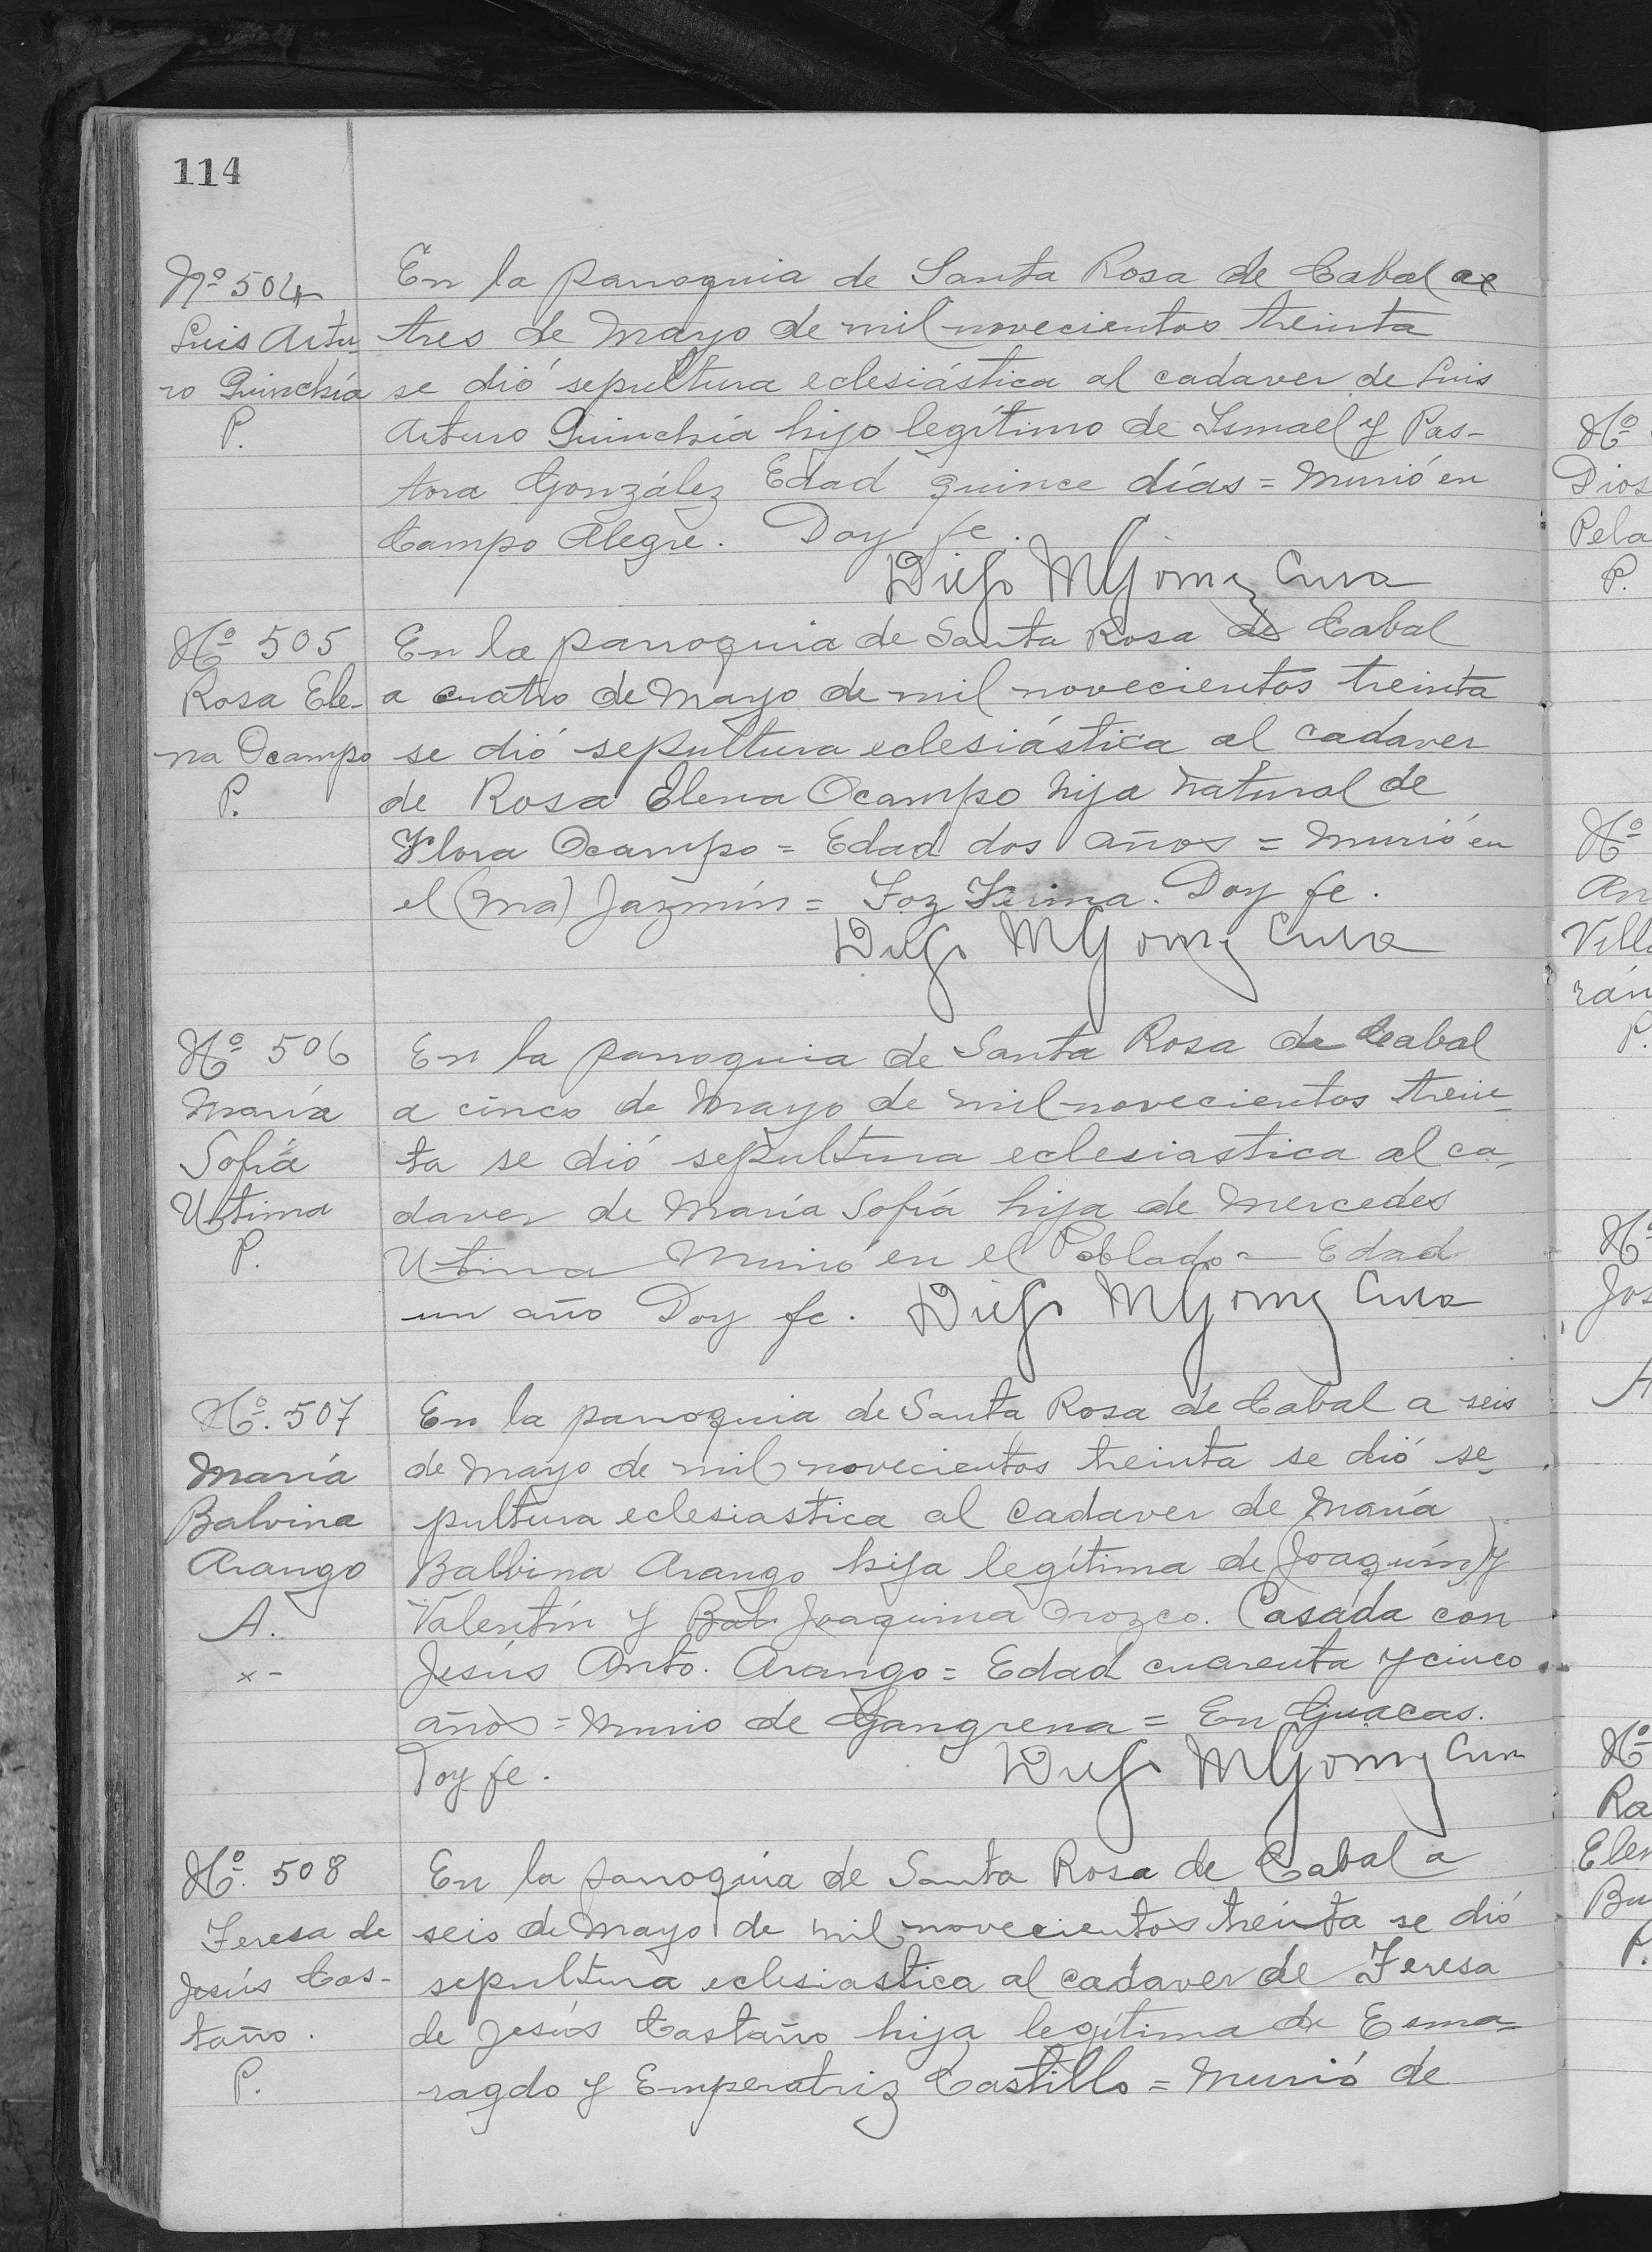 114
Nº 504
Luis Artu-
ro Quinchía
P.
En la parroquia de Santa Rosa de Cabal a
tres de Mayo de mil novecientos treinta
se dió sepultura eclesiástica al cadaver de Luis
Arturo Quinchía hijo legítimo de Ismael y Pas-
tora González Edad quince días = Murió en
Campo Alegre. Doy fe.
Diego M Gómez Cura
Nº 505
Rosa Ele-
na Ocampo
P.
En la parroquia de Santa Rosa de Cabal
a cuatro de Mayo de mil novecientos treinta
se dió sepultura eclesiástica al cadaver
de Rosa Elena Ocampo hija natural de
Flora Ocampo = Edad dos años = Murió en
el (ma) Jazmín = Toz Ferina. Doy fe.
Diego M Gómez Cura
Nº 506
María
Sofía
Utima
P.
En la parroquia de Santa Rosa de Cabal
a cinco de Mayo de mil novecientos trein-
ta se dió sepultura eclesiastica al ca-
daver de María Sofía hija de Mercedes
Utima Murió en el Poblado = Edad
un año Doy fe. Diego M Gómez Cura
Nº. 507
María
Balvina
Arango
A.
x -
En la parroquia de Santa Rosa de Cabal a seis
de Mayo de mil novecientos treinta se dió se-
pultura eclesiastica al cadaver de María
Balvina Arango hija legítima de (Joaquín) y
Valentín y Bal Joaquina Orozco. Casada con
Jesús Anto. Arango = Edad cuarenta y cinco
años = Murio de Gangrena = En Guacas.
Doy fe. Diego M Gómez Cura
Nº. 508
Teresa de
Jesús Cas-
taño.
P.
En la parroquia de Santa Rosa de Cabal a
seis de Mayo de mil novecientos treinta se dió
sepultura eclesiastica al cadaver de Teresa
de Jesús Castaño hija legítima de Esma-
ragdo y Emperatriz Castillo = Murió de
Nº
Dios
Pela
P.
Nº
An
Villa
rán
P.
Nº
Jos
A
Nº
Ra
Elen
Bu
P.